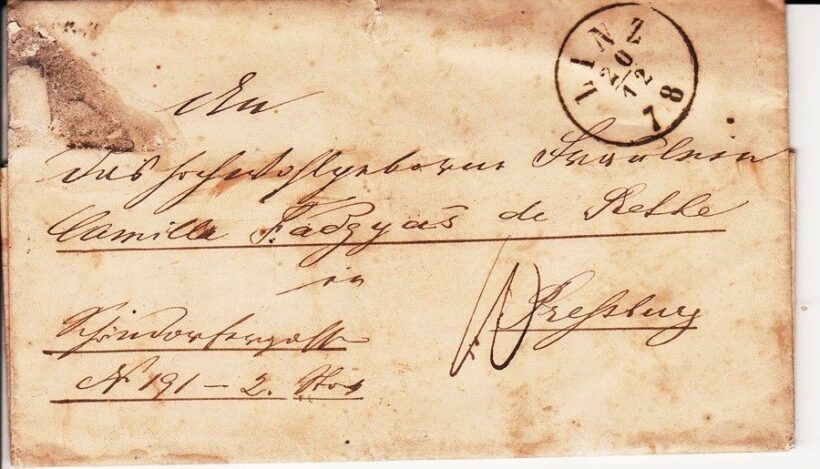 LINZ
20/12
78
An
das hochwohlgeborne Fräulein
Camilla Fadgyas de Rethe
in
Pressburg
Schöndorfergasse
N 191 – 2. Stock